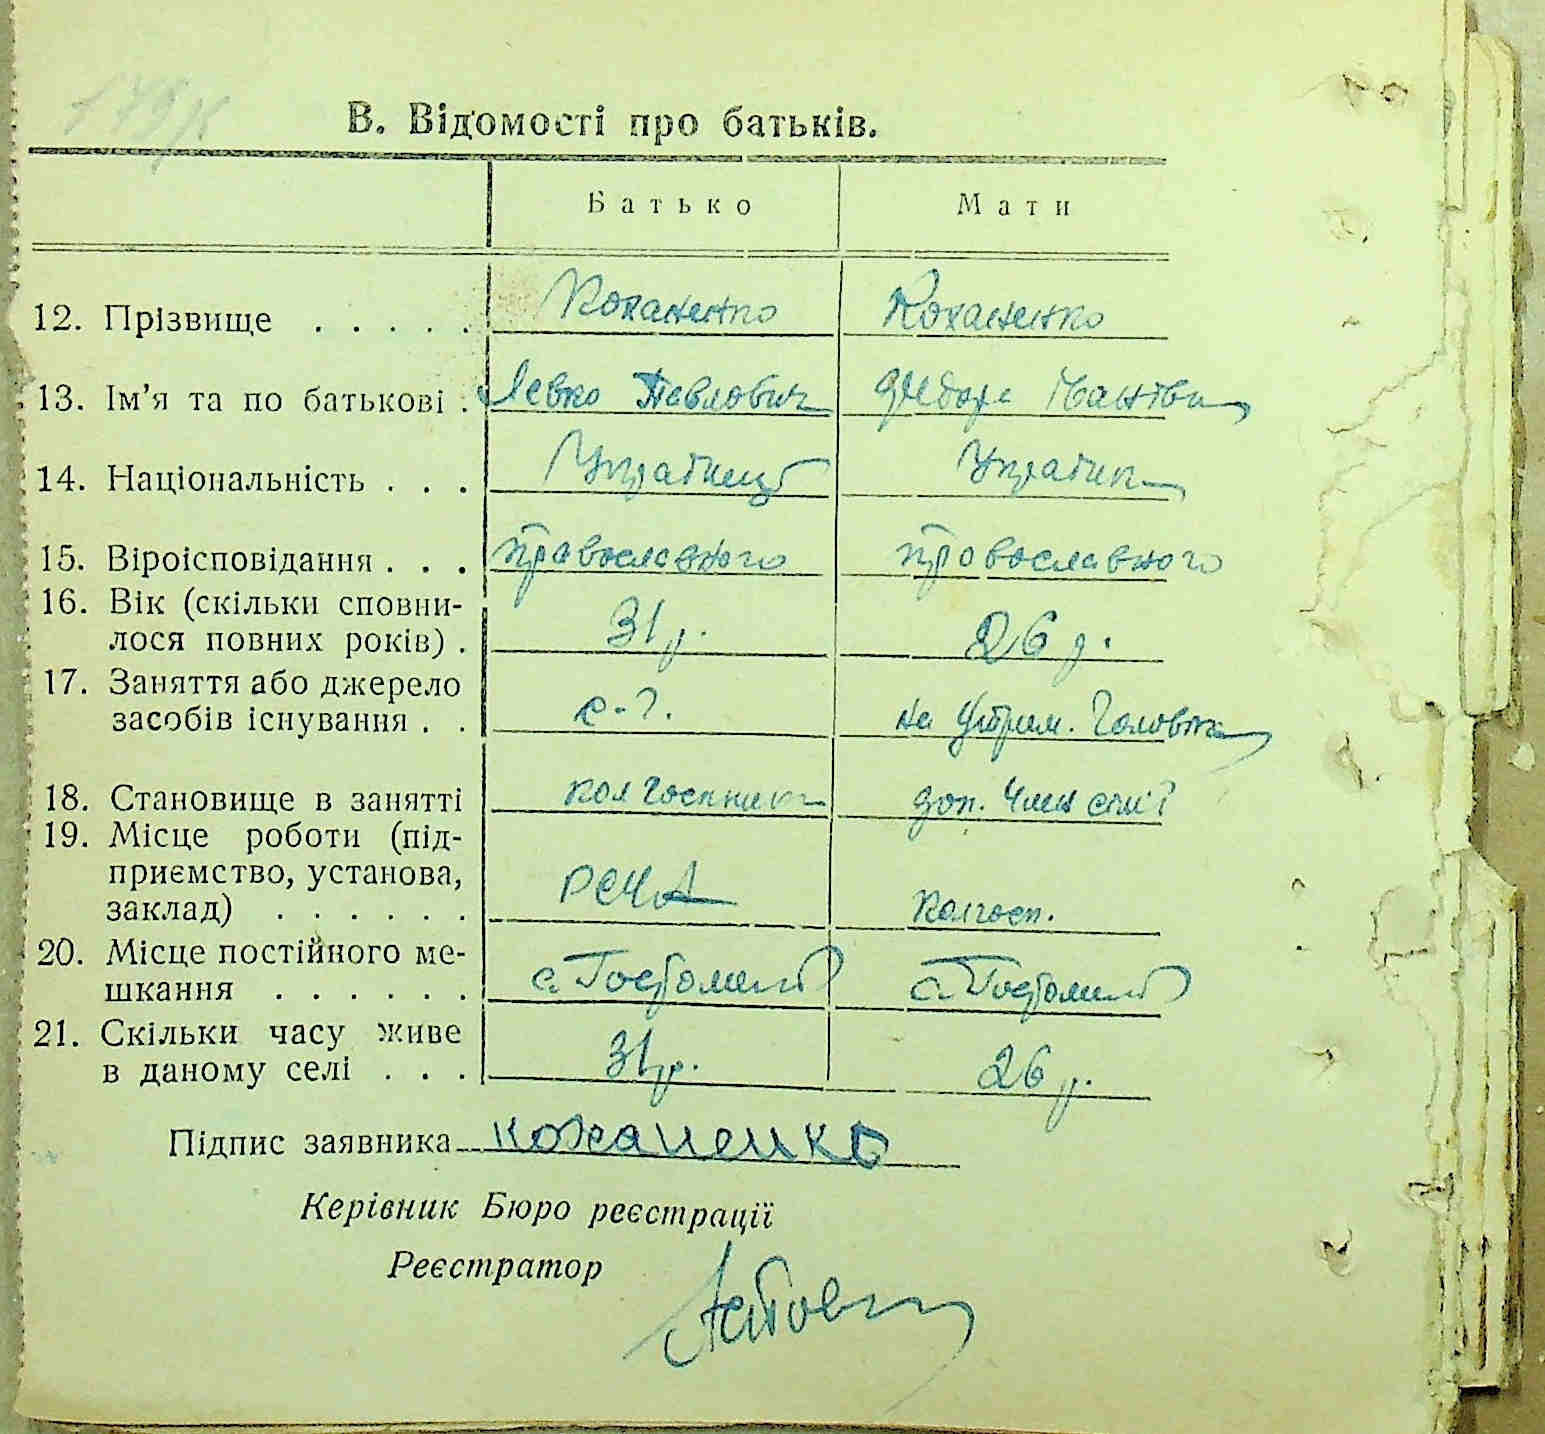 179/к
В. Відомості про батьків.
Батько Мати
12. Прізвище . . . . . Коханенко Коханенко
13. Ім'я та по батькові . Левко Павлович Федора Панівна
14. Національність . . . Українець Українка
15. Віроісповідання . . . православного православного
16. Вік (скільки сповни-
лося повних років) . 31 р. 26 р.
17. Заняття або джерело
засобів існування . . с.-г. на утрим. Головна
18. Становище в занятті колгоспник доп. член сім'ї
19. Місце роботи (під-
приємство, установа,
заклад) . . . . . . РСЧА колгосп.
20. Місце постійного ме-
шкання . . . . . . с. Гостомель с. Гостомель
21. Скільки часу живе
в даному селі . . . 31 р. 26 р.
Підпис заявника коханенко
Керівник Бюро реєстрації
Реєстратор